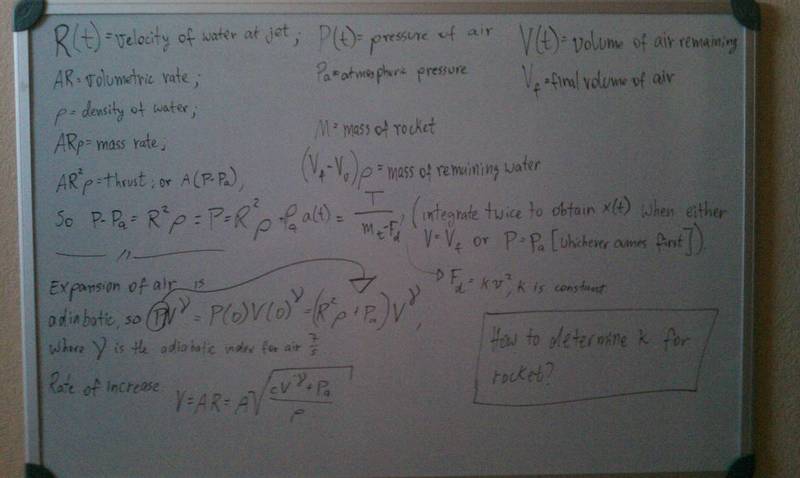 R(t) = velocity of water at jet; P(t) = pressure of air V(t) = volume of air remaining
AR = volumetric rate; Pa = atmospheric pressure Vf = final volume of air
ρ = density of water;
ARρ = mass rate; M = mass of rocket
AR²ρ = thrust; or A(P-Pa), (Vf-V0)ρ = mass of remaining water
So P-Pa = R²ρ = P = R²ρ - Pa a(t) = T / mt-Fd, (integrate twice to obtain x(t) when either
V = Vf or P = Pa [whichever comes first]).
Fd = kv², k is constant
Expansion of air is
adiabatic, so PV^γ = P(0)V(0)^γ = (R²ρ + Pa)V^γ,
where γ is the adiabatic index for air 7/5
How to determine k for
rocket?
Rate of increase
V = AR = A√(cV^-γ + Pa / ρ)